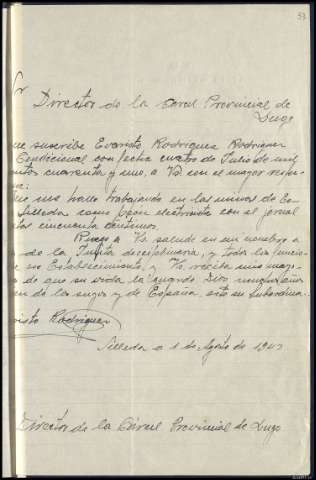 53
Sr
Director de la Carcel Provincial de
Lugo
que suscribe Evaristo Rodriguez Rodriguez
Condicional con fecha cuatro de Julio de mil
entos cuarenta y uno, a Vd con el mayor respe
que me hallo trabajando en las minas de
Silleda como peón electricista con el jornal
tas cincuenta centimos.
Ruego a Vd salude en mi nombre a
de la Junta deciplinaria, y todos los funcio
de ese Establecimiento, y Vd, reciba mis mas
de que su vida la guarde Dios muchos años
bien de los suyos y de España, este su subordina
Evaristo Rodriguez
Silleda a 1 de Agosto de 1943
Director de la Cárcel Provincial de Lugo